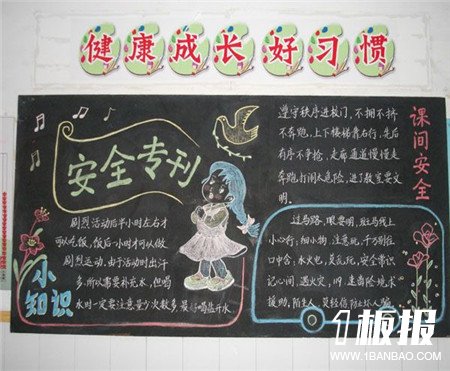 健康成长好习惯
安全专刊
剧烈活动后半小时左右才
可以吃饭,饭后一小时才可以做
剧烈运动,由于活动时出汗
多,所以需要补充水,但喝
水时一定要注意量少次数多,最好喝盐开水
小知识
课间安全
遵守秩序进校门,不拥不挤
不奔跑,上下楼梯靠右行,先后
有序不争抢,走廊通道慢慢走
奔跑打闹太危险,进了教室要文
明。
过马路,眼要明,斑马线上
小心行,细小物,注意玩,千万别往
口中含,水火电,莫乱玩,安全常识
记心间,遇火灾,119,走南险地求
援助,陌生人,莫轻信防止坏人骗
1板报
WWW.1BANBAO.COM